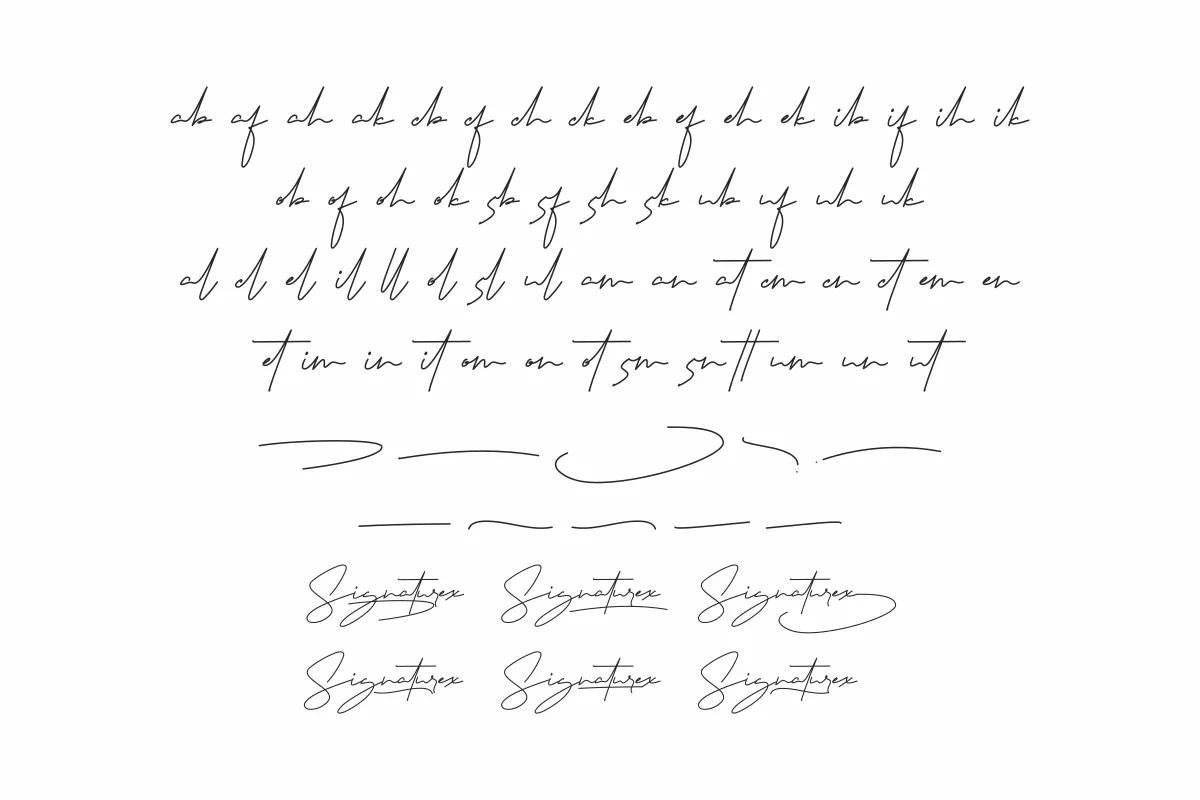 ab af ah ak cb cf ch ck eb ef eh ek ib if ih ik
ob of oh ok sb sf sh sk ub uf uh uk
al cl el il ll ol sl ul am an at cm cn ct em en
et im in it om on ot sm sn tt um un ut
Signaturex Signaturex Signaturex
Signaturex Signaturex Signaturex